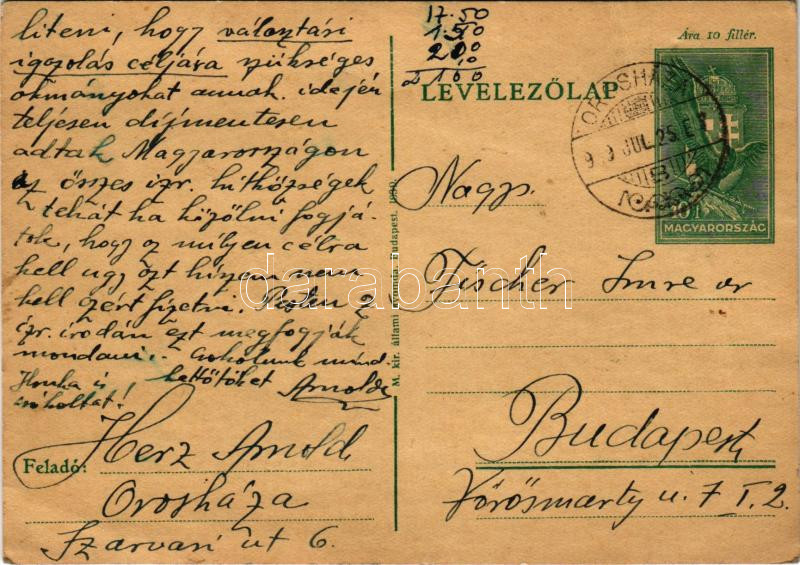 liteni, hogy választási
igazolás céljára szükséges
okmányokat annak idején
teljesen díjmentesen
adtak Magyarországon
az összes izr. hitközségek
tehát ha közölni fogjá-
tok, hogy ez milyen célra
kell ugy ezt hiszem nem
kell azért fizetni. Pesten
izr. irodán ezt megfogják
mondani. Csókolunk mind-
kettőtöket Arnold
Ilonka is
csókoltat!
Feladó: Herz Arnold
Orosháza
Szarvasi út 6.
17.50
1.50
2 00
10
2100
M. kir. állami nyomda, Budapest, 1939.
Ára 10 fillér.
LEVELEZŐLAP
OROSHÁZA
939 JUL. 25. E
B
10f
MAGYARORSZÁG
Nags.
Fischer Imre úr
Budapest
Vörösmarty u. 7 I. 2.
darabanth